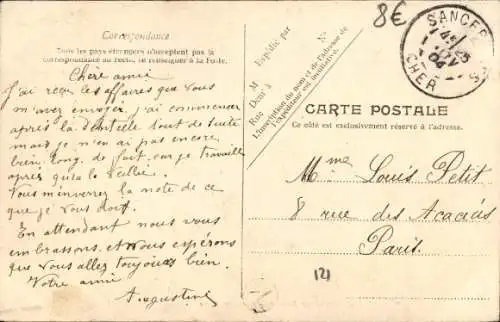 Correspondance
Tous les pays étrangers n'acceptent pas la
correspondance au recto, se renseigner à la Poste.
Chère amie
J'ai reçu les affaires que vous
m'avez envoyer j'ai commencer
après la dentelle tout de suite
mais je n'en ai pas encore
bien long de fait car je travaille
après qu'à la
Vous m'enverrez la note de ce
que je vous doit.
En attendant nous vous
embrassons et nous espérons
que vous allez toujours bien.
Votre amie
Augustine
Expédié par
N°
M
Demt à
Rue
L'inscription du nom et de l'adresse de
l'expéditeur est facultative.
8€
SANCER
CHER
CARTE POSTALE
Ce côté est exclusivement réservé à l'adresse.
Mme Louis Petit
8 rue des Acacias
Paris
121